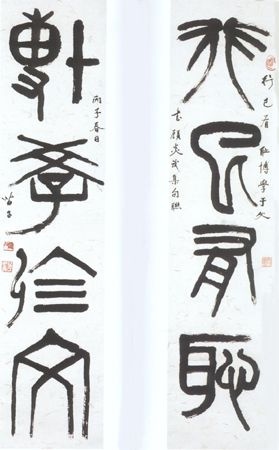 行己有恥
行己有耻博學于文
书顧炎武集句聯
博學於文
丙子春日
苗子